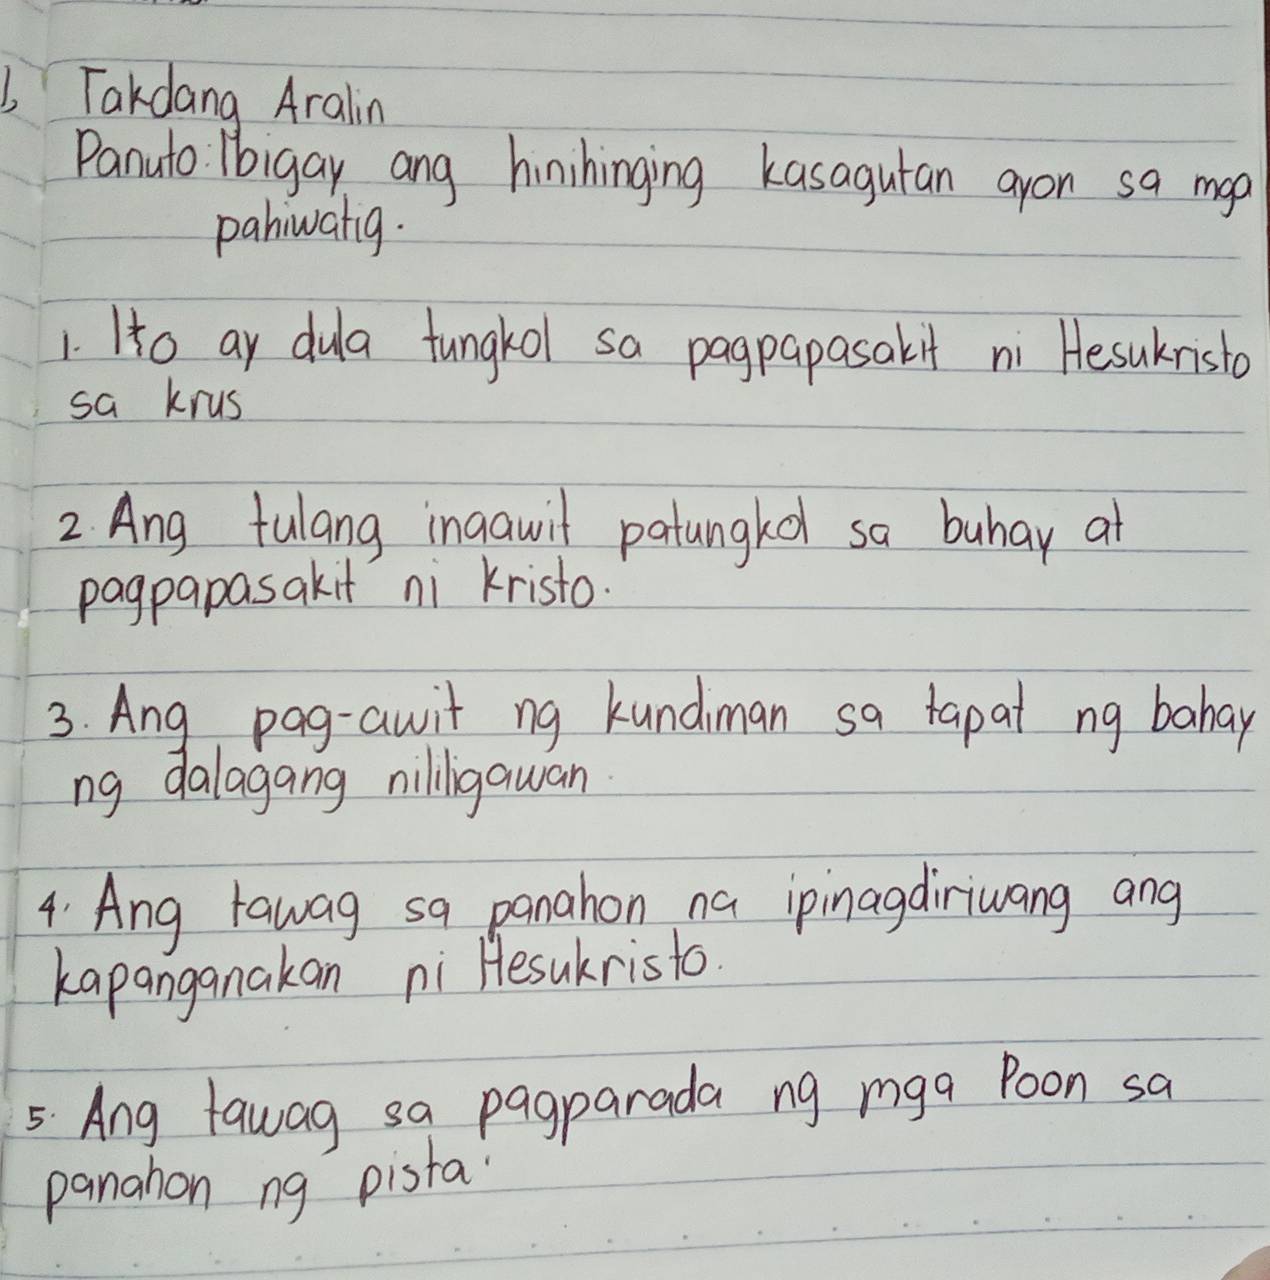 Takdang Aralin
Panuto: Ibigay ang hinihinging kasagutan ayon sa mga
pahiwatig.
1. Ito ay dula tungkol sa pagpapasakit ni Hesukristo
sa krus
2. Ang tulang inaawit patungkol sa buhay at
pagpapasakit ni Kristo.
3. Ang pag-awit ng kundiman sa tapat ng bahay
ng dalagang nililigawan.
4. Ang tawag sa panahon na ipinagdiriwang ang
kapanganakan ni Hesukristo.
5. Ang tawag sa pagparada ng mga Poon sa
panahon ng pista.